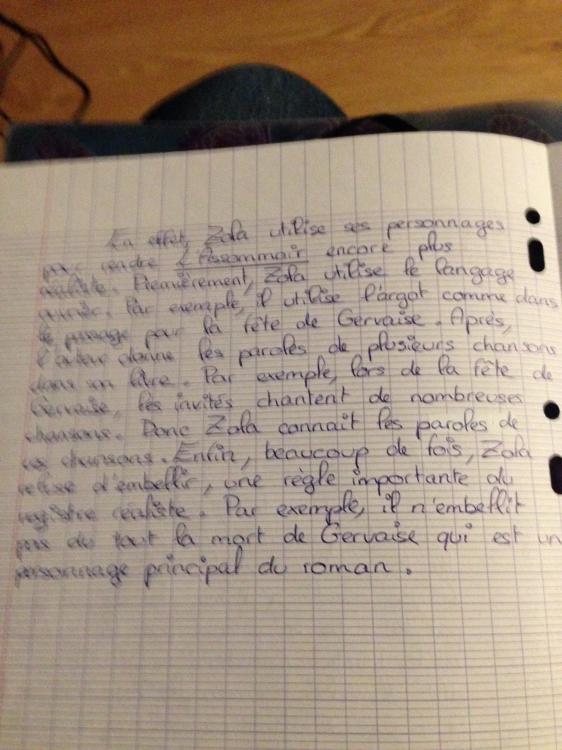 En effet, Zola utilise ses personnages
pour rendre L'Assommoir encore plus
réaliste. Premièrement, Zola utilise le langage
ouvrier. Par exemple, il utilise l'argot comme dans
le passage pour la fête de Gervaise. Après,
l'auteur donne les paroles de plusieurs chansons
dans son livre. Par exemple, lors de la fête de
Gervaise, les invités chantent de nombreuses
chansons. Donc Zola connaît les paroles de
ces chansons. Enfin, beaucoup de fois, Zola
refuse d'embellir, une règle importante du
registre réaliste. Par exemple, il n'embellit
pas du tout la mort de Gervaise qui est un
personnage principal du roman.